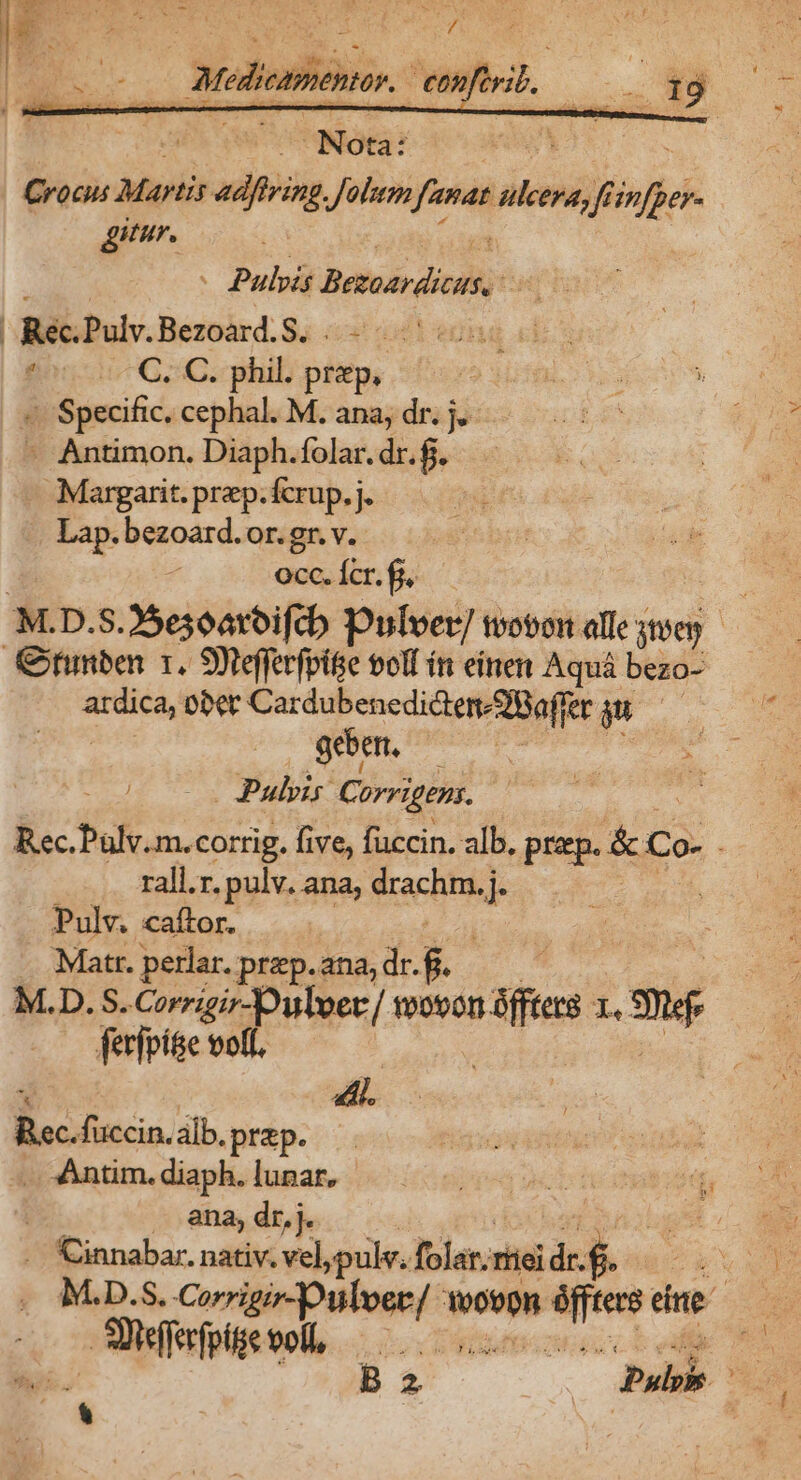 Medicamentor. conſcrib. 19
Nota:
Crocus Martis adſtring. ſolum ſanat ulcera, ſi inſper-
gitur.
Pulvis Bezoardicus.
Rec. Pulv. Bezoard. S.
C. C. phil. præp.
Specific. cephal. M. ana, dr. j.
Antimon. Diaph. ſolar. dr. ß.
Margarit. præp. ſcrup. j.
Lap. bezoard. or. gr. v.
occ. ſcr. ß.
M. D. S. Bezoardiſch Pulver/ wovon alle zwey
Stunden 1. Meſſerſpitze voll in einen Aquâ bezo-
ardica, oder Cardubenedicten-Waſſer zu
geben.
Pulvis Corrigens.
Rec. Pulv. m. corrig. ſive, ſuccin. alb. præp. & Co-
rall. r. pulv. ana, drachm. j.
Pulv. caſtor.
Matr. perlar. præp. ana, dr. ß.
M. D. S. Corrigir-Pulver/ wovon öffters 1. Meſ-
ſerſpitze voll.
Al.
Rec. ſuccin. alb. præp.
Antim. diaph. lunar.
ana, dr. j.
Cinnabar. nativ. vel, pulv. ſolar. mei dr. ß.
M. D. S. Corrigir-Pulver/ wovon öffters eine
Meſſerſpitze voll.
B 2 Pulvis